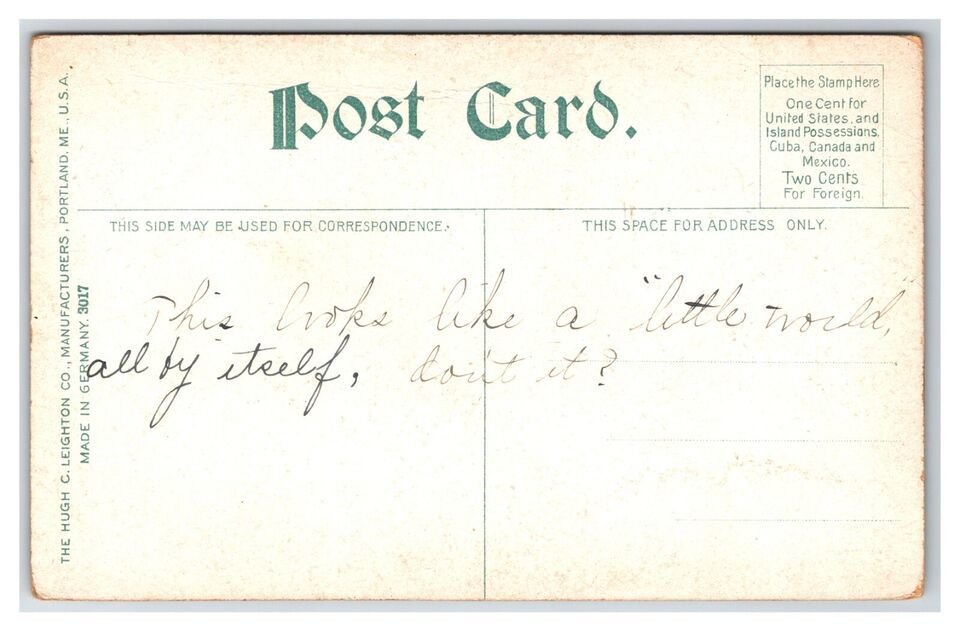 Post Card.
Place the Stamp Here
One Cent for
United States, and
Island Possessions,
Cuba, Canada and
Mexico.
Two Cents
For Foreign.
THIS SIDE MAY BE USED FOR CORRESPONDENCE.
THIS SPACE FOR ADDRESS ONLY.
This looks like a "little world,"
all by itself, don't it?
THE HUGH C. LEIGHTON CO., MANUFACTURERS, PORTLAND, ME., U.S.A.
MADE IN GERMANY. 3017